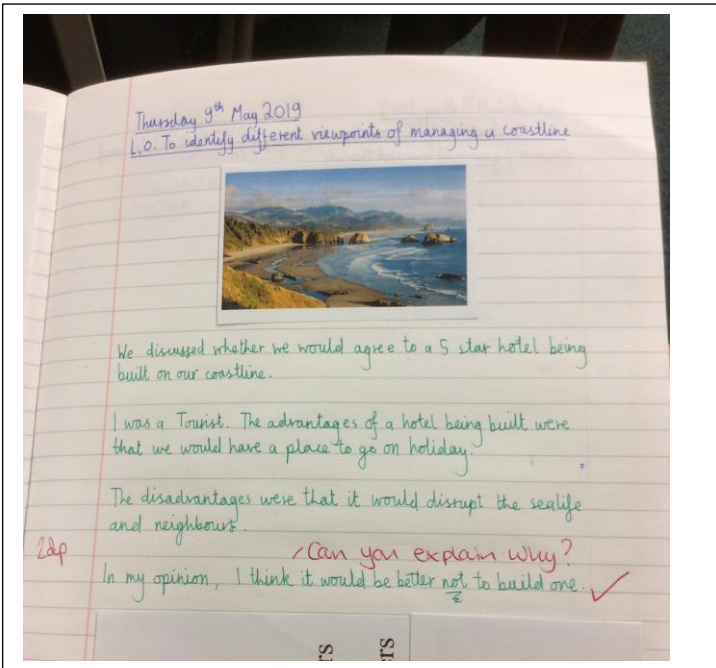 Thursday 9th May 2019
L.O. To identify different viewpoints of managing a coastline
We discussed whether we would agree to a 5 star hotel being
built on our coastline.
I was a Tourist. The advantages of a hotel being built were
that we would have a place to go on holiday.
The disadvantages were that it would disrupt the sealife
and neighbours.
2dp
Can you explain why?
In my opinion, I think it would be better not to build one.
rs
ers